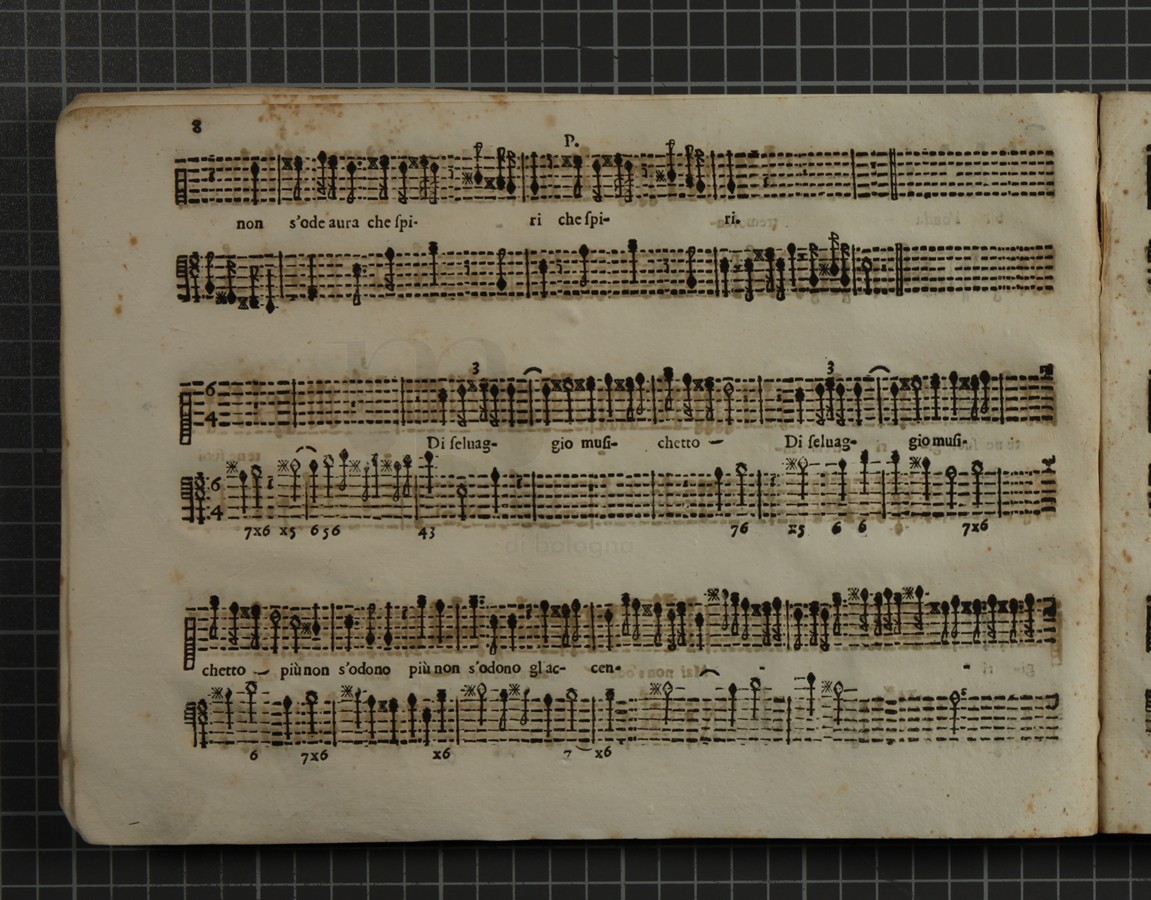 8
P.
non s'ode aura che ſpi- ri che ſpi- ri.
3 3
6
4
Di ſeluag- gio muſi- chetto — Di ſeluag- gio muſi-
6
4
7x6 x5 6 5 6 43 76 x5 6 6 7x6
chetto — più non s'odono più non s'odono gl ac- cen- - -
6 7x6 x6 7 x6
di bologna